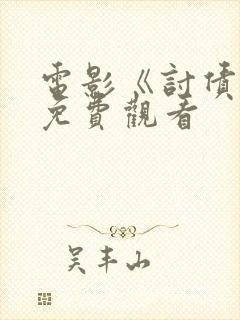 電影《討債
免費觀看
吳丰山